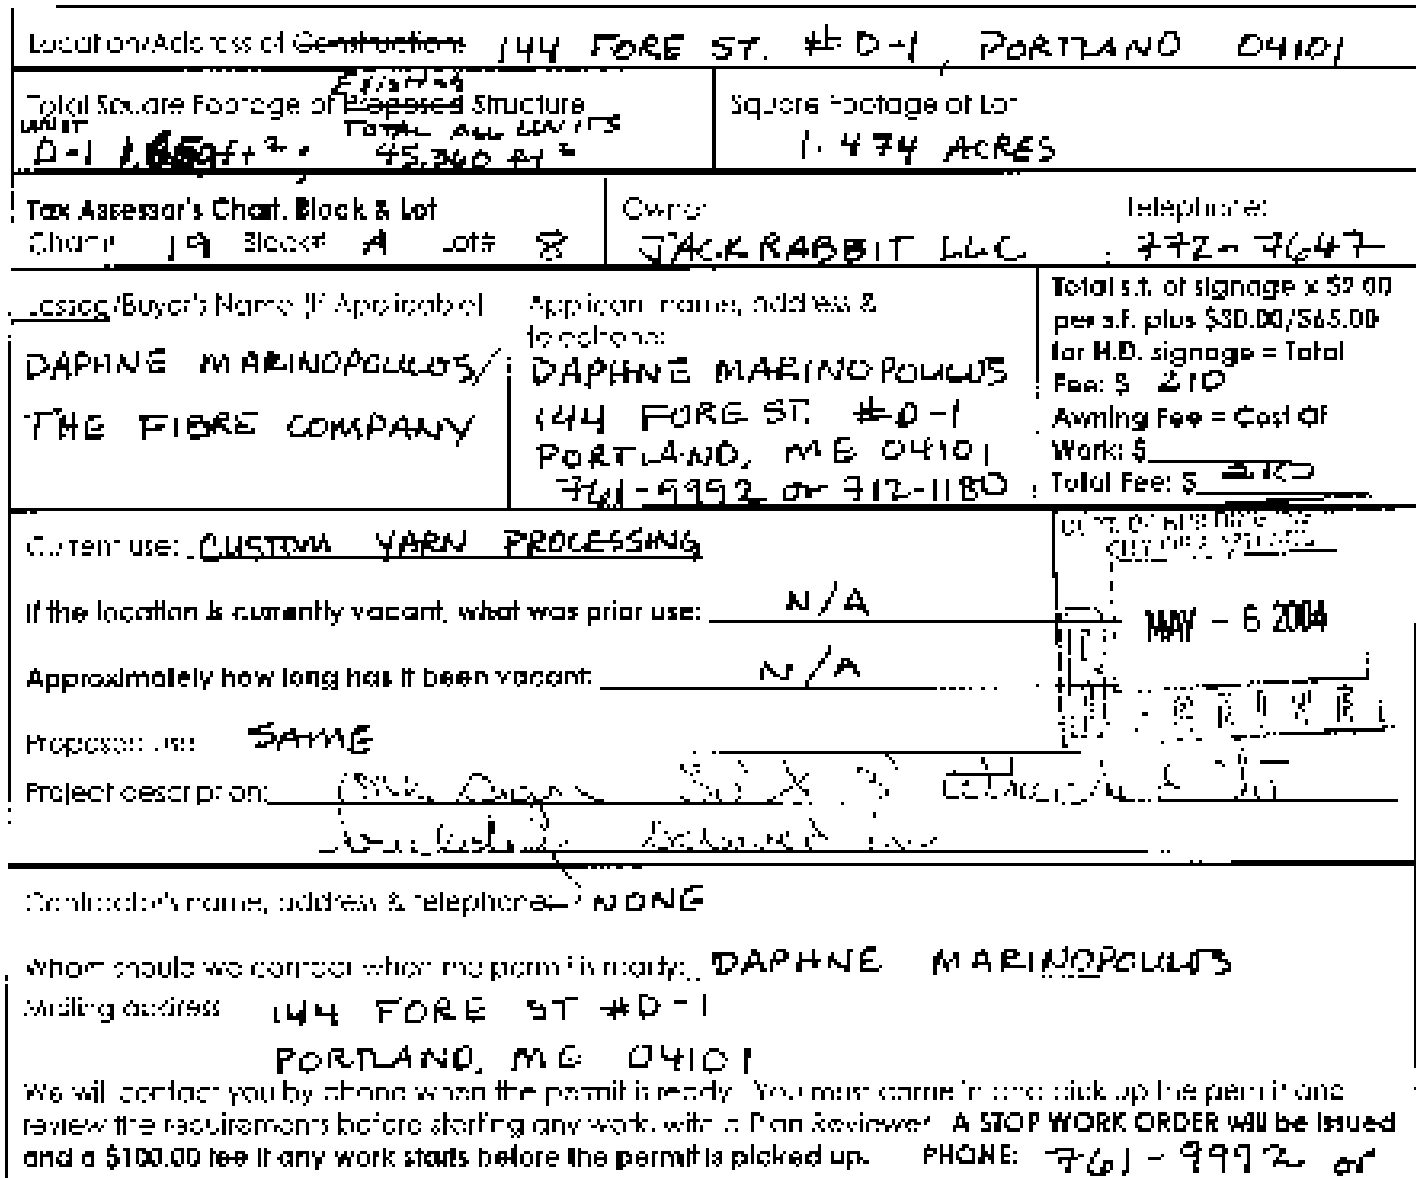 Location/Address of Construction: 144 FORE ST. # D-1, PORTLAND 04101
EXISTING
Total Square Footage of Proposed Structure
UNIT TOTAL ALL UNITS
D-1 ft² 45,360 ft²
Square Footage of Lot
1.474 ACRES
Tax Assessor's Chart, Block & Lot
Chart# 19 Block# A Lot# 8
Owner:
JACK RABBIT LLC
Telephone:
772-7647
Lessee/Buyer's Name (If Applicable)
DAPHNE MARINOPOULOS/
THE FIBRE COMPANY
Applicant name, address &
telephone:
DAPHNE MARINOPOULOS
144 FORE ST. #D-1
PORTLAND, ME 04101
761-9992 or 712-1180
Total s.f. of signage x $2.00
per s.f. plus $30.00/$65.00
for H.D. signage = Total
Fee: $ 210
Awning Fee = Cost Of
Work: $
Total Fee: $ 210
Current use: CUSTOM YARN PROCESSING
If the location is currently vacant, what was prior use: N/A
Approximately how long has it been vacant: N/A
MAY - 6 2004
Proposed use: SAME
Project description:
Contractor's name, address & telephone: NONE
Whom should we contact when the permit is ready: DAPHNE MARINOPOULOS
Mailing address: 144 FORE ST #D-1
PORTLAND, ME 04101
We will contact you by phone when the permit is ready. You must come in and pick up the permit and
review the requirements before starting any work, with a Plan Reviewer. A STOP WORK ORDER will be issued
and a $100.00 fee if any work starts before the permit is picked up. PHONE: 761-9992 or